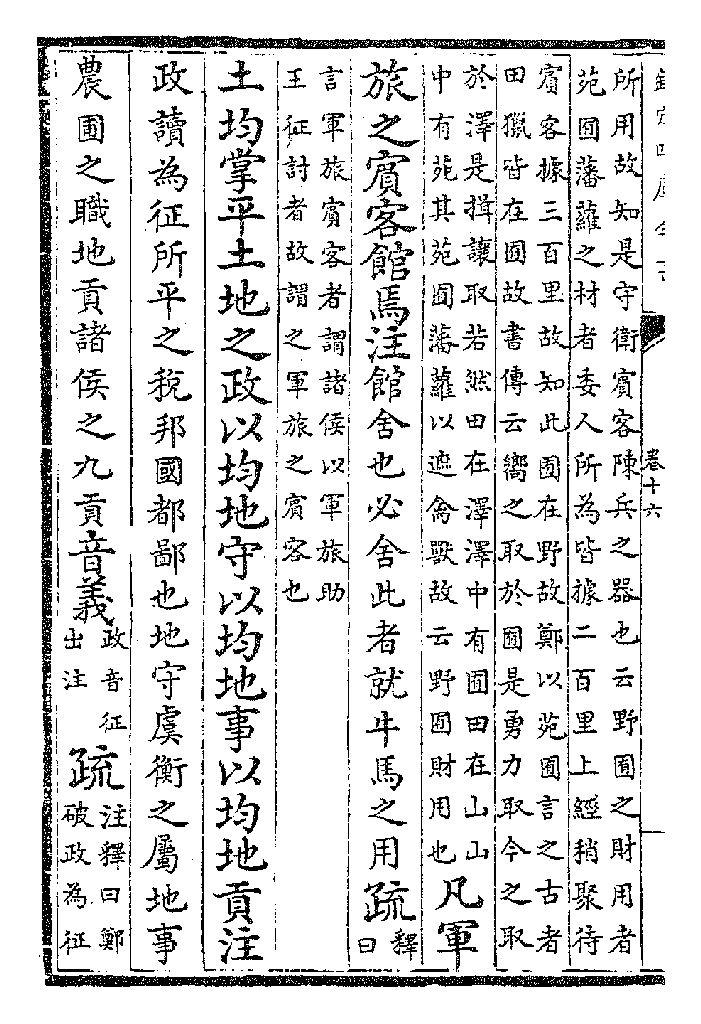 欽定四庫全書
卷十六
所用故知是守衛賓客陳兵之器也云野囿之財用者
苑囿藩蘿之材者委人所為皆據二百里上經稍聚待
賓客據三百里故知此囿在野故鄭以苑囿言之古者
田獵皆在囿故書傳云嚮之取於囿是勇力取今之取
於澤是揖讓取若然田在澤澤中有囿田在山山
中有苑其苑囿藩蘿以遮禽獸故云野囿財用也凡軍
旅之賓客館焉注館舍也必舍此者就牛馬之用疏釋曰
言軍旅賓客者謂諸侯以軍旅助
王征討者故謂之軍旅之賓客也
土均掌平土地之政以均地守以均地事以均地貢注
政讀為征所平之稅邦國都鄙也地守虞衡之屬地事
農圃之職地貢諸侯之九貢音義政音征出注疏注釋曰鄭破政為征